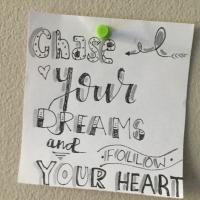 Chase
your
DREAMS
and
FOLLOW
YOUR HEART